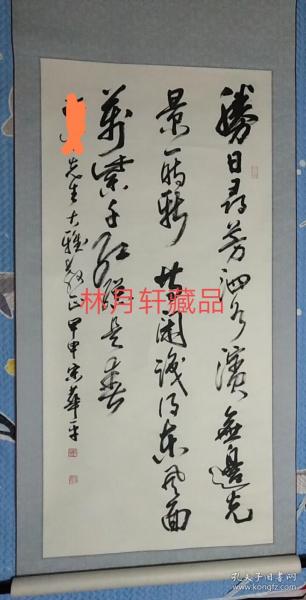 勝日尋芳泗水濱無邊光
景一時新等閑識得東風面
萬紫千紅總是春
先生大雅教正甲申宋華平
林月轩藏品
孔夫子旧书网